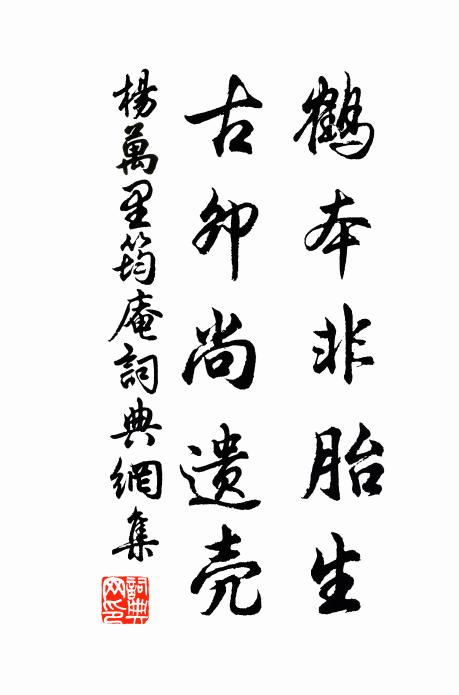 鶴本非胎生
古卵尚遺壳
楊萬里筠庵詞典網集
詞典網印